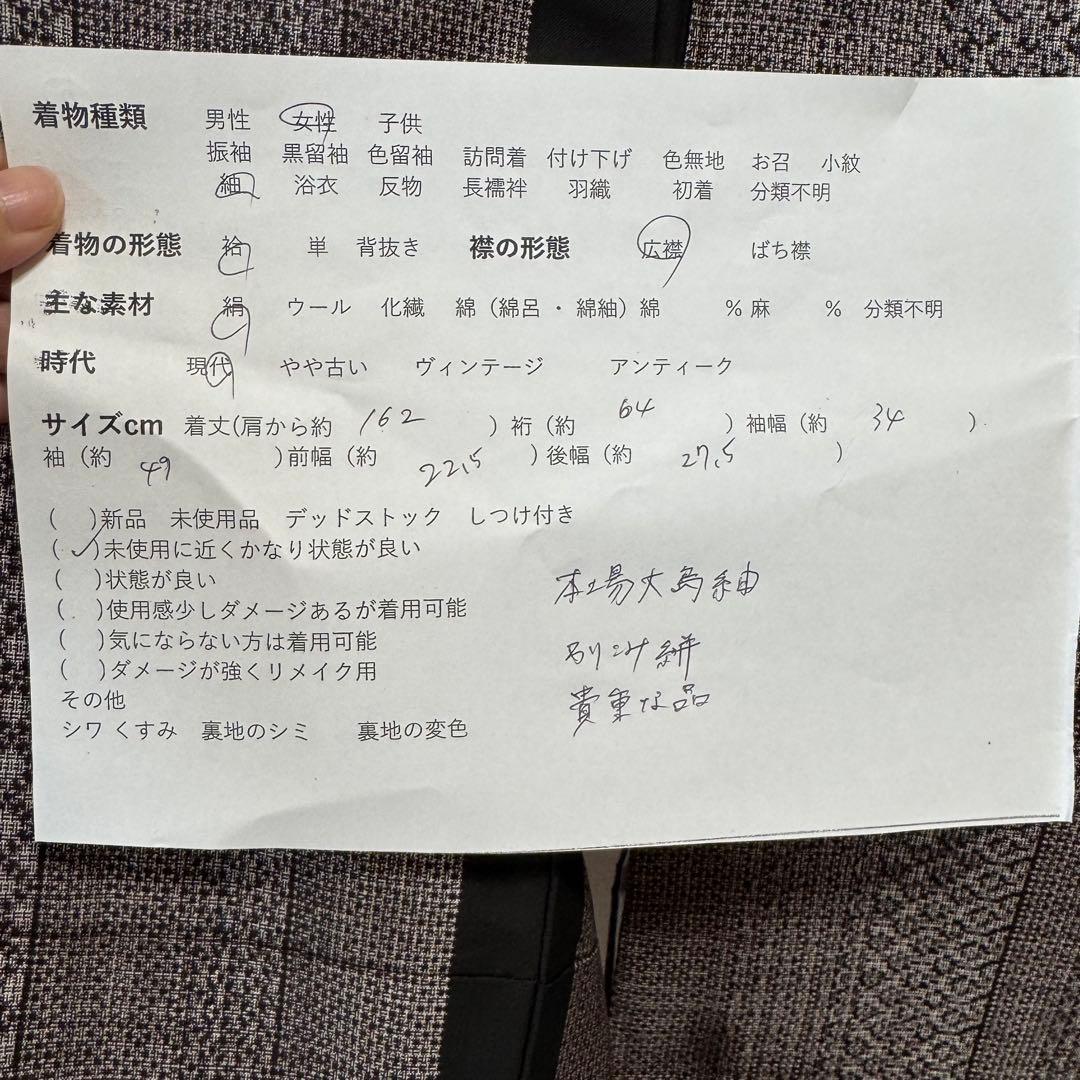 着物種類 男性 女性 子供
振袖 黒留袖 色留袖 訪問着 付け下げ 色無地 お召 小紋
紬 浴衣 反物 長襦袢 羽織 初着 分類不明
着物の形態 袷 単 背抜き 襟の形態 広襟 ばち襟
主な素材 絹 ウール 化繊 綿（綿呂・綿紬）綿 % 麻 % 分類不明
時代 現代 やや古い ヴィンテージ アンティーク
サイズcm 着丈(肩から約 162 ）裄（約 64 ）袖幅（約 34 ）
袖（約 49 ）前幅（約 22,5 ）後幅（約 27,5 ）
( )新品 未使用品 デッドストック しつけ付き
(✓)未使用に近くかなり状態が良い
( )状態が良い
( )使用感少しダメージあるが着用可能
( )気にならない方は着用可能
( )ダメージが強くリメイク用
その他
シワ くすみ 裏地のシミ 裏地の変色
本場大島紬
絣
貴重な品